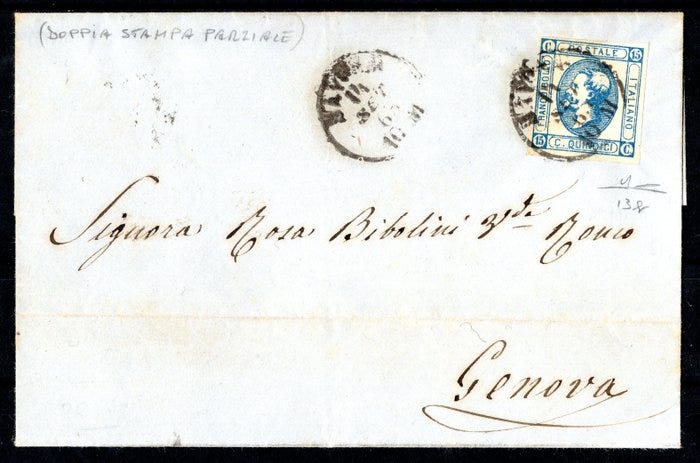 (DOPPIA STAMPA PARZIALE)
14
SET
63
10 M
C. POSTALE 15
FRANCO BOLLO
ITALIANO
15 C. QUINDICI C.
138
Signora Rosa Bibolini Vda Ronco
Genova